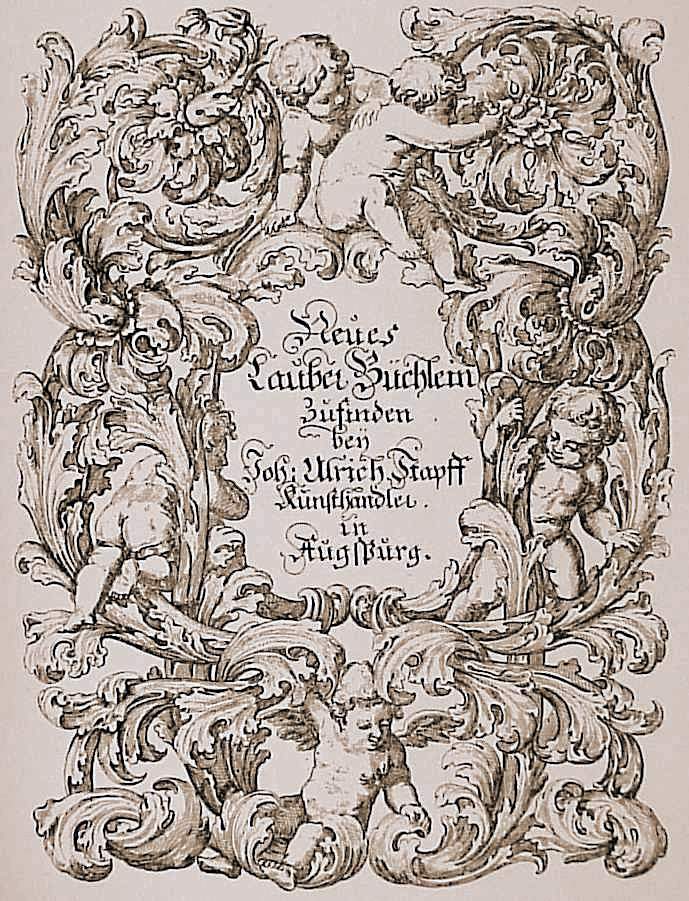 Neües
Lauber Büchlein
Zufinden
beÿ
Joh: Ulrich Stapff
Kunsthandler.
in
Augspurg.